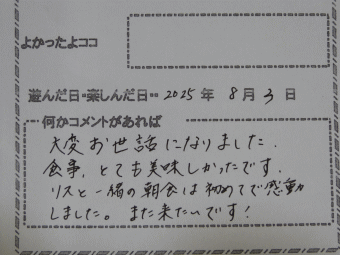 よかったよココ
遊んだ日・楽しんだ日・・ 2025 年 8 月 3 日
何かコメントがあれば
大変お世話になりました.
食事、とても美味しかったです.
リスと一緒の朝食は初めてで感動
しました。また来たいです!